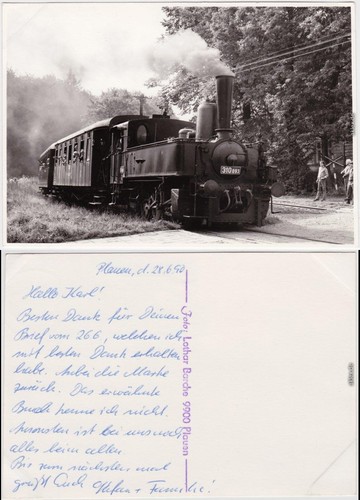 Plauen, d. 28.6.90
Hallo Karl!
Besten Dank für Deinen
Brief vom 26.6, welchen ich
mit besten Dank erhalten
habe. Anbei die Marke
zurück. Das erwähnte
Buch kenne ich nicht.
Ansonsten ist bei uns noch
alles beim alten
Bis zum nächsten mal
grüßt Euch Stefan + Familie!
Foto: Lothar Barche 9900 Plauen